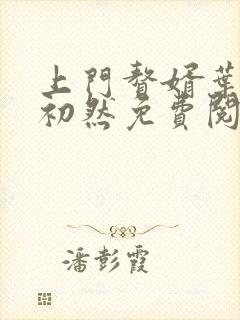 上門贅婿葉
初然免費閱
潘彭霞